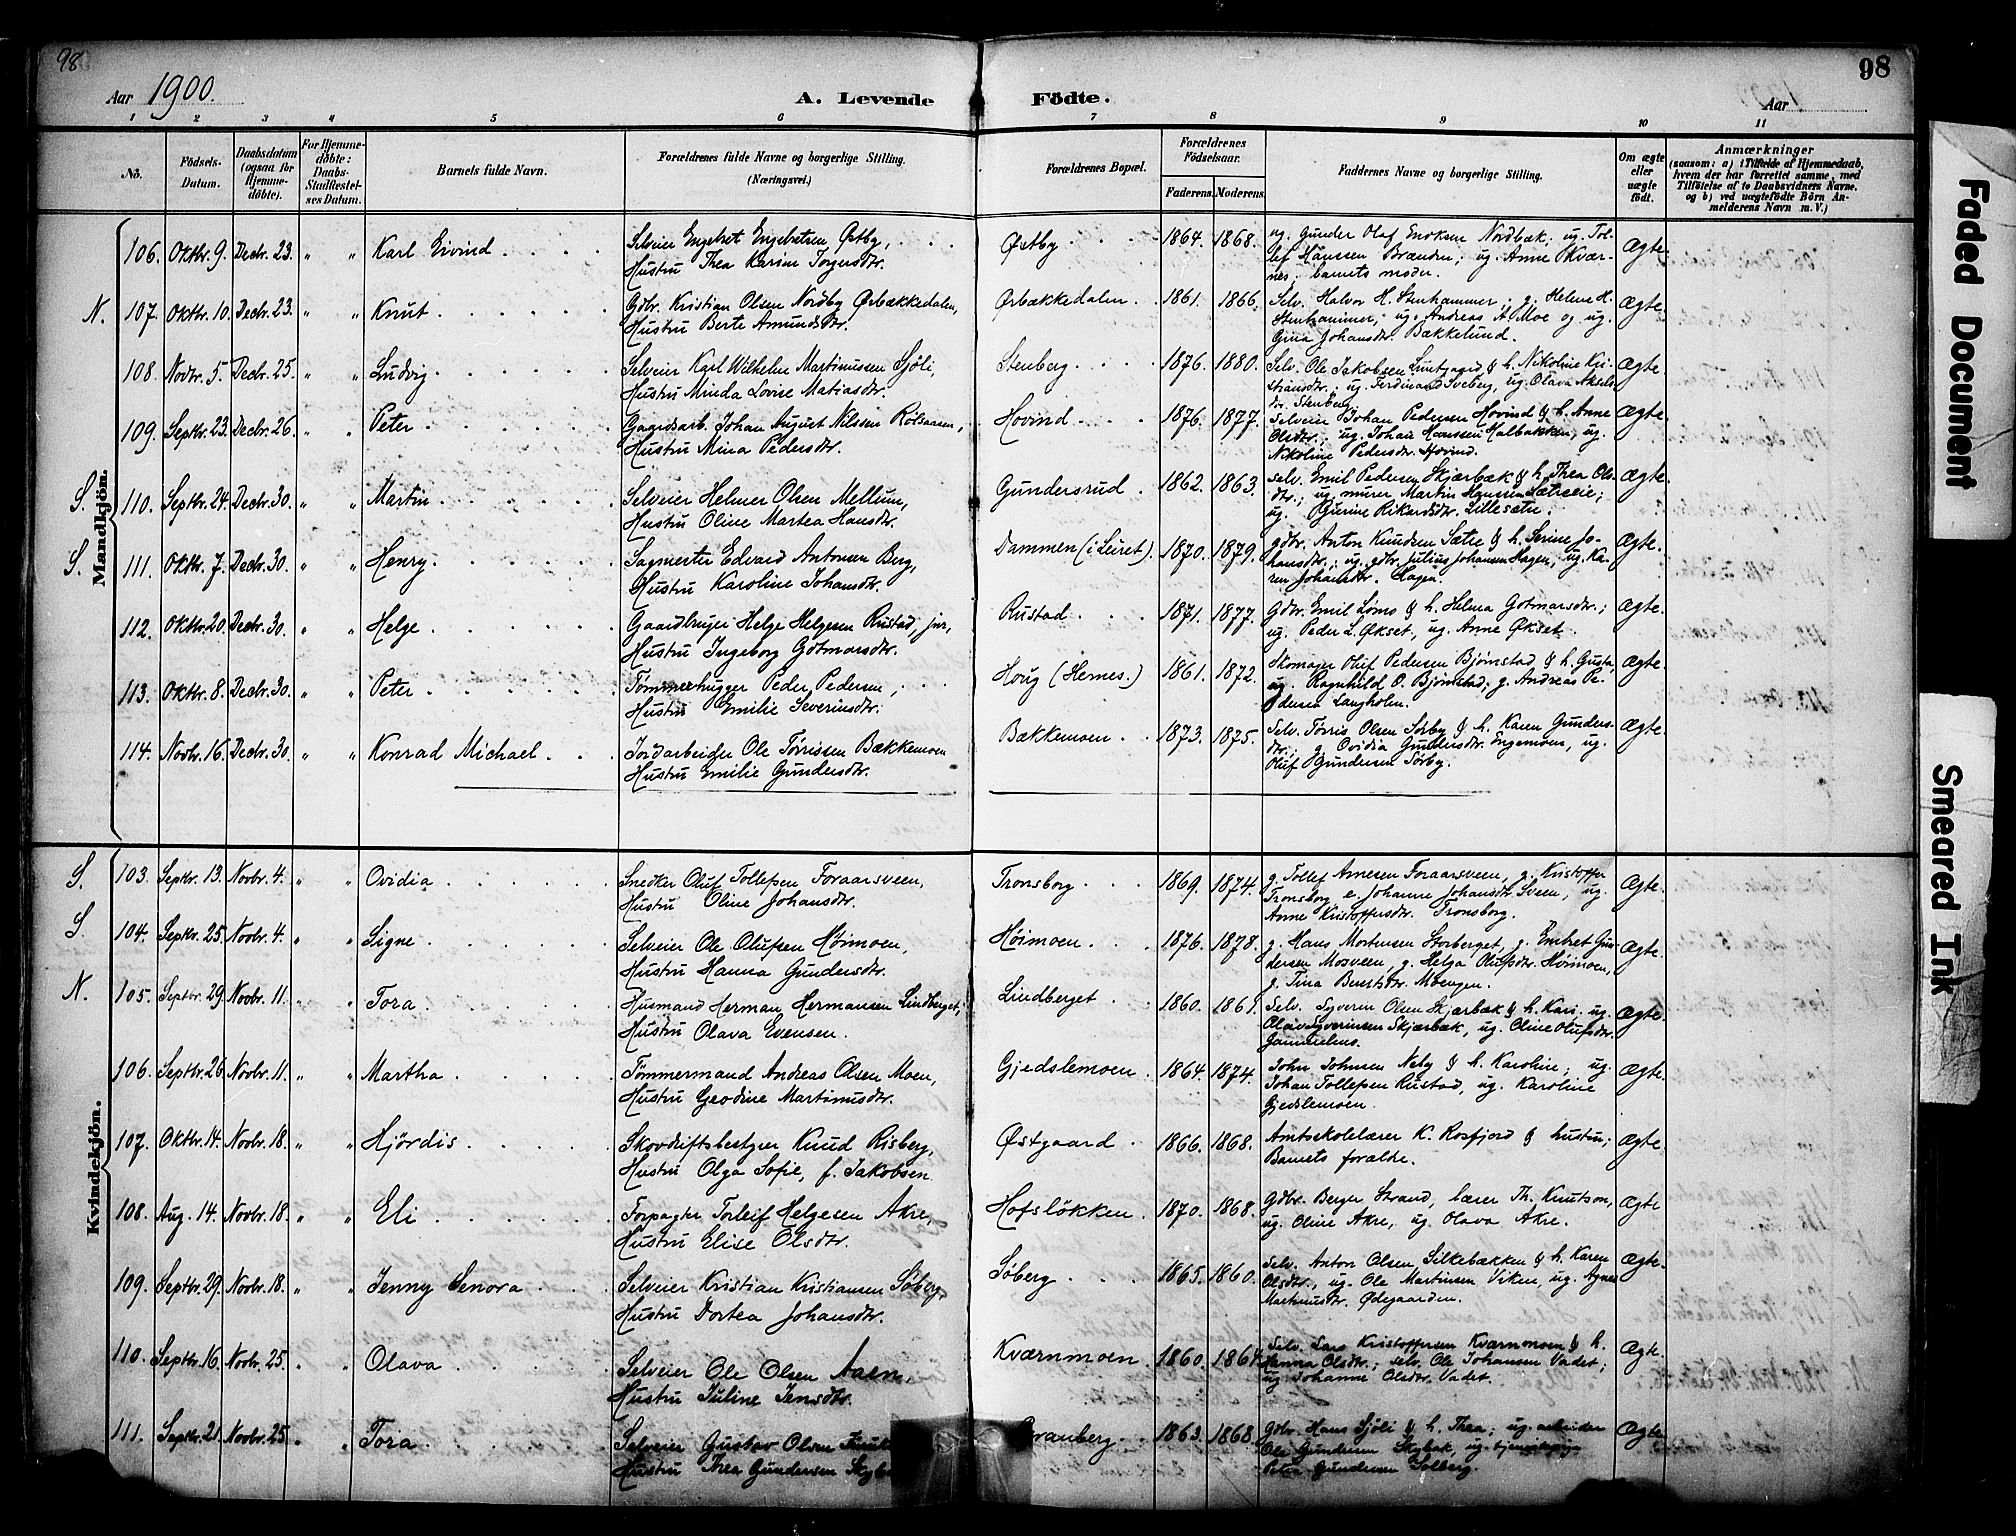 98
98
Aar 1900.
A. Levende Födte.
Aar
1 2 3 4 5 6 7 8 9 10 11
No.
Födsels-Datum.
Daabsdatum (ogsaa for Hjemme-döbte).
For Hjemme-döbte: Daabs-Stadfæstel-ses Datum.
Barnets fulde Navn.
Forældrenes fulde Navne og borgerlige Stilling. (Næringsvei.)
Forældrenes Bopæl.
Forældrenes Födselsaar.
Faderens. Moderens.
Faddernes Navne og borgerlige Stilling.
Om ægte eller uægte födt.
Anmærkninger
(saasom: a) i Tilfælde af Hjemmedaab, hvem der har forrettet samme, med Tilföielse af to Daabsvidners Navne, og b) ved uægtefödte Börn An-melderens Navn m. V.)
Mandkjön.
106. Oktbr. 9. Decbr. 23. " " Karl Eivind Selveier Engebret Engebretsen Østby, Østby 1864. 1868. ug. Gunder Olaf Enoksen Nordbæk; ug. Tol- Ægte.
Hustru Thea Karine Torgersdtr. lef Hanssen Brænden; ug. Anne Kvær-
nes; barnets moder.
N. 107. Oktbr. 10. Decbr. 23. " " Knut Gdbr. Kristian Olsen Nordby Ørbækkedalen, Ørbækkedalen 1861. 1866. Selv. Halvor H. Stenhammer; g. Helene H. Ægte.
Hustru Berte Amundsdtr. Stenhammer; ug. Andreas A. Moe og ug.
Gina Johansdtr. Bækkelund.
108. Novbr. 5. Decbr. 25. " " Ludvig Selveier Karl Wilhelm Martinussen Sjöli, Stenberg 1876. 1880. Selv. Ole Jakobsen & h. Nikoline Kri- Ægte
Hustru Minda Lovise Matiasdtr. stiansdtr.; ug. Ferdinand Sveberg, ug. Olava Aksels-
dtr. Stenberg.
109. Septbr. 23. Decbr. 26. " " Peter Gaardsarb. Johan August Nilssen Rölsaasen, Hovind 1876. 1877. Selveier Johan Pedersen Hovind & h. Anne Ægte.
Hustru Mina Pedersdtr. Olsdtr.; ug. Johan Hanssen Malbakken, ug.
Nikoline Pedersdtr. Hovind.
S. 110. Septbr. 24. Decbr. 30. " " Martin Selveier Helmer Olsen Mellum, Gundersrud 1862. 1863. Selv. Emil Pedersen Skjærbæk & h. Thea Ols- Ægte.
Hustru Oline Martea Hansdtr. dtr.; ug. murer Martin Hanssen Sætreeie;
ug. Gurine Rikardsdtr. Lillesætre.
S. 111. Oktbr. 7. Decbr. 30. " " Henry Sagmester Edvard Antonsen Berg, Dammen (i Leiret). 1870. 1879. gdbr. Anton Knudsen Sætre & h. Serine Jo- Ægte.
Hustru Karoline Johansdtr. hansdtr.; ug. gdbr. Julius Johansen Hagen, ug. Ka-
ren Johansdtr. Hagen.
112. Oktbr. 20. Decbr. 30. " " Helge Gaardbruger Helge Helgesen Rustad, jnr, Rustad 1871. 1877. Gdbr. Emil Loms & h. Helma Gotmarsdtr.; Ægte.
Hustru Ingeborg Gotmarsdtr. ug. Peder L. Økset, ug. Anne Økset.
113. Oktbr. 8. Decbr. 30. " " Peter Tømmerhugger Peder Pedersen, Houg (Hernes.) 1861. 1872. Skomager Oluf Pedersen Bjørnstad & h. Gusta, Ægte.
Hustru Emilie Severinsdtr. ug. Ragnhild O. Bjørnstad; g. Andreas Pe-
dersen Langholm.
114. Novbr. 16. Decbr. 30. " " Konrad Michael Jordarbeider Ole Tørrissen Bækkemoen Bækkemoen 1873. 1875. Selv. Tørris Olsen Sörby & h. Karen Gunders- Ægte
Hustru Emilie Gundersdtr. dtr.; g. Ovidia Gundersdtr. Engemoen, ug.
Oluf Gundersen Sörby.
Kvindekjön.
S. 103. Septbr. 13. Novbr. 4. " " Ovidia Snedker Oluf Tollefsen Foraarsveen, Tronsborg 1869. 1874. g. Tollef Arnesen Foraarsveen, g. Kristoffer Ægte.
Hustru Oline Johansdtr. Tronsborg, e. Johanne Johansdtr. Sveen, ug.
Anne Kristoffersdtr. Tronsborg.
S. 104. Septbr. 25. Novbr. 4. " " Signe Selveier Ole Olufsen Höimoen, Höimoen 1876. 1878. g. Hans Mortensen Storberget, g. Embret Gun- Ægte.
Hustru Hanna Gundersdtr. dersen Mosveen, g. Helga Olufsdtr. Höimoen,
g. Tina Berntsdtr. Moengen.
N. 105. Septbr. 29. Novbr. 11. " " Tora Husmand Herman Hermansen Lindberget, Lindberget 1860. 1861. Selv. Syverin Olsen Skjærbæk & h. Kari; ug. Ægte.
Hustru Olava Evensen. Olava Syverinsen Skjærbæk, ug. Oline Olufsdtr.
106. Septbr. 26. Novbr. 11. " " Martha Tømmermand Andreas Olsen Moen, Gjedslemoen 1864. 1874. John Johnsen Neby & h. Karoline; ug. Ægte.
Hustru Geodine Martinusdtr. Johan Tollefsen Rustad, ug. Karoline
Gjedslemoen.
107. Oktbr. 14. Novbr. 18. " " Hjördis Skovdriftsbestyrer Knud Risberg, Østgaard 1866. 1868. Amtsskolelærer K. Rosfjord & hustru; Ægte.
Hustru Olga Sofie, f. Jakobsen. Barnets forældre.
108. Aug. 14. Novbr. 18. " " Eli Forpagter Torleif Helgesen Akre, Hofslökken 1870. 1868. Gdbr. Berger Strand, lærer Th. Knutson, Ægte
Hustru Elise Olsdtr. ug. Oline Akre, ug. Olava Akre.
109. Septbr. 29. Novbr. 18. " " Jenny Senora Selveier Kristian Kristiansen Söberg, Söberg 1865. 1860. Selv. Anton Olsen Silkebækken & h. Karen Ægte.
Hustru Dortea Johansdtr. Olsdtr., ug. Ole Martinsen Viken, ug. Agnes
Martinusdtr. Ødegaarden.
110. Septbr. 16. Novbr. 25. " " Olava Selveier Ole Olsen Aasen, Kværnmoen 1860. 1864. Selv. Lars Kristoffersen Kværnmoen & h. Ægte.
Hustru Juline Jensdtr. Hanna Olsdtr.; selv. Ole Johansen Vadet;
ug. Johanne Olsdtr. Vadet.
111. Septbr. 21. Novbr. 25. " " Tora Selveier Gustav Olsen Granberg 1863. 1868. Gdbr. Hans Sjöli & h. Thea; ug. arbeider Ægte
Hustru Thea Gundersen Ole Gundersen Skybak, ug. tjenestepige
Petra Gundersen Solberg.
Faded Document
Smeared Ink